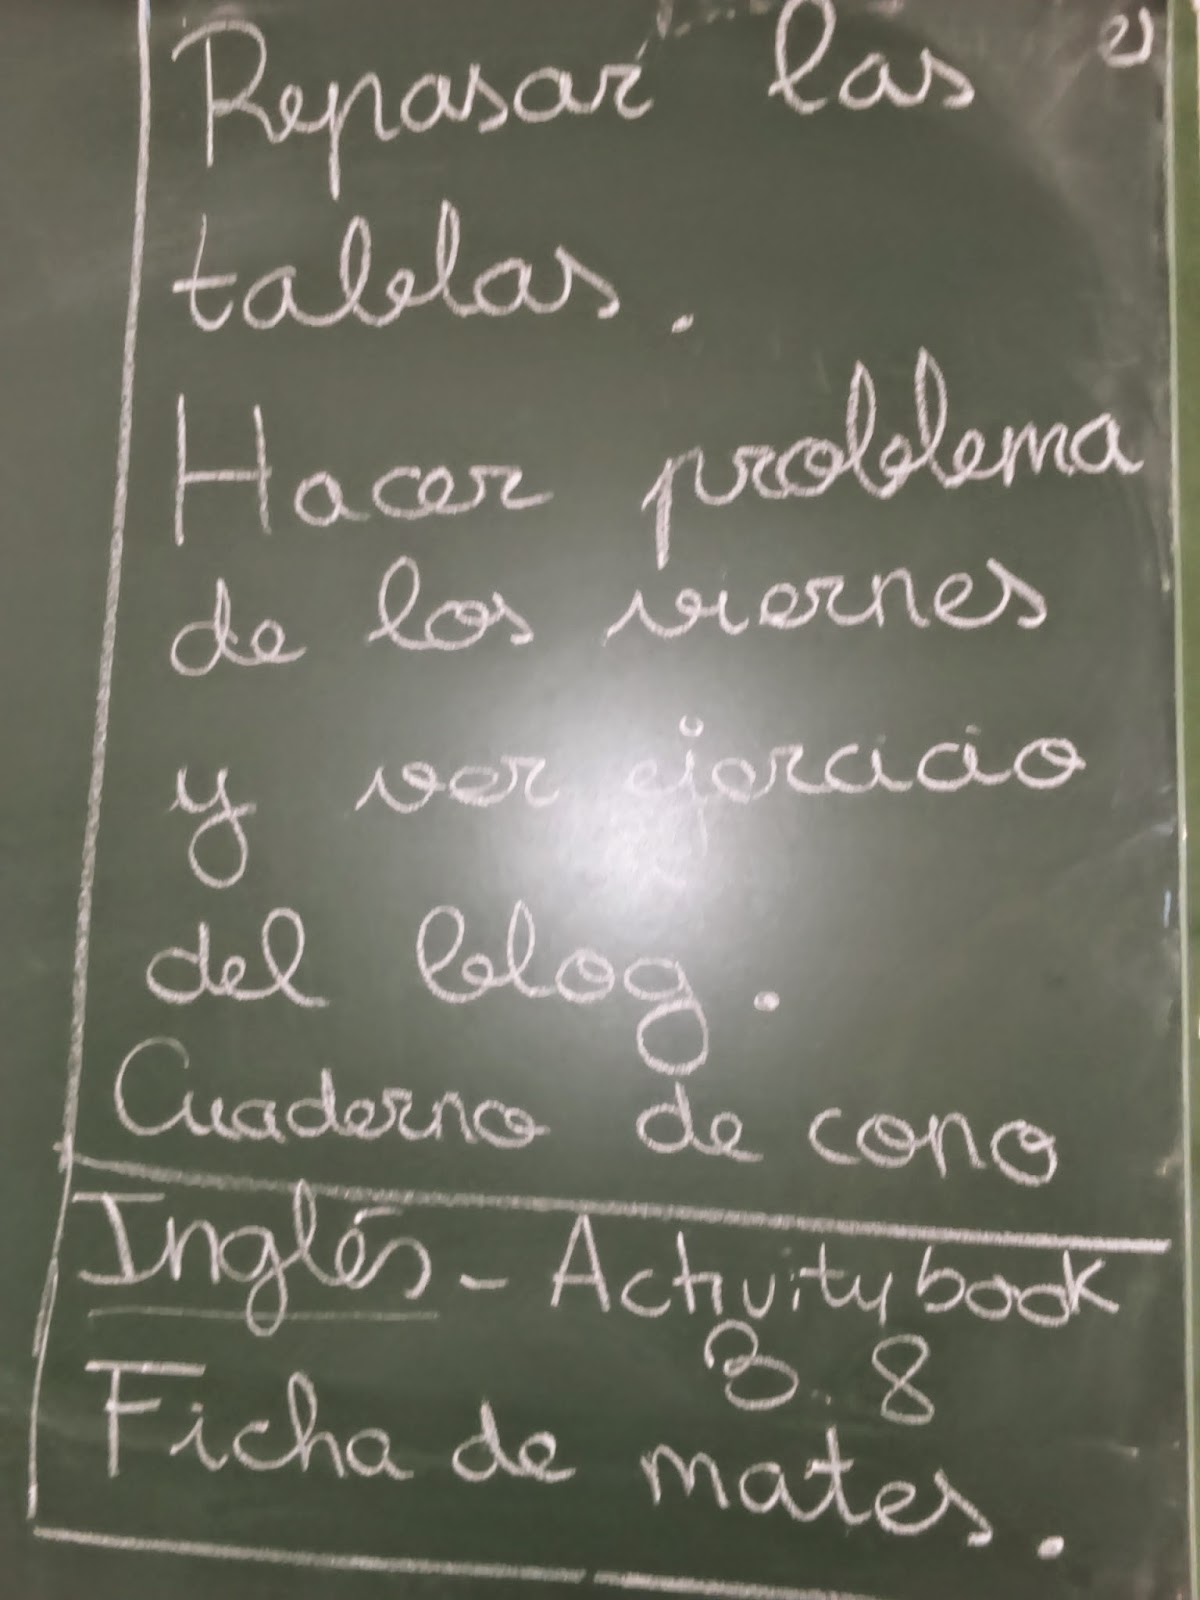 Repasar las
tablas.
Hacer problema
de los viernes
y ver ejercicio
del blog.
Cuaderno de cono
Inglés - Activity book
3.8
Ficha de mates.